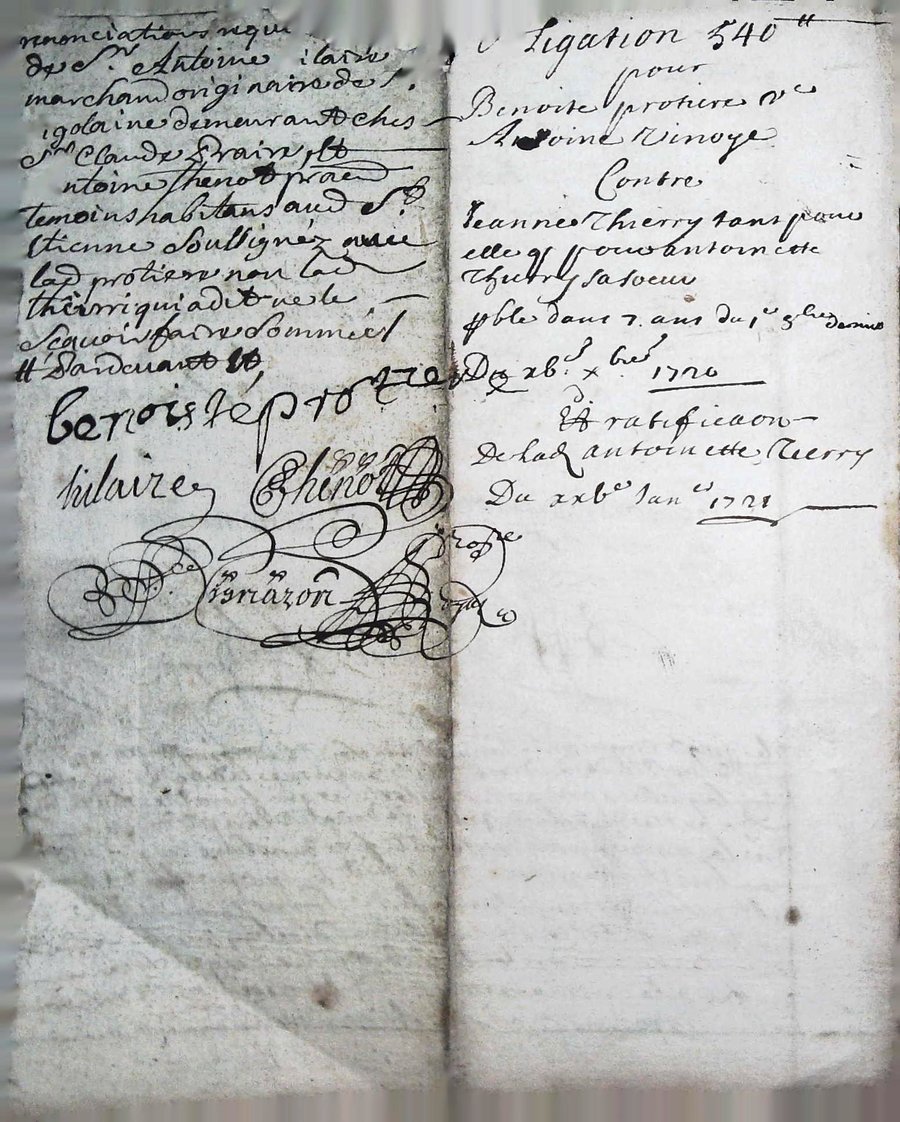 renonciations requi
de Sr. Antoine ilaire
marchand originaire de
igolaine demeurant ches
Sr Claude Praire, et
ntoine Thenot praed
temoins habitans aud St.
Etienne Soussignéz avec
lad protiere non lad
thierri qui a dit ne le
Scavoir faire Sommée
benoiste protiere
hilaire Thenot
Brazon
ligation 540 tt
pour
Benoite protiere ve
Antoine Vinoye
Contre
Jeanne Thierry tant pour
elle q pour antoinette
Thierry sa soeur
pble dans 7. ans du 1er 9bre dernier
Du xbre 1720
Et ratification
De lad antoinette Tierry
Du Janer 1721